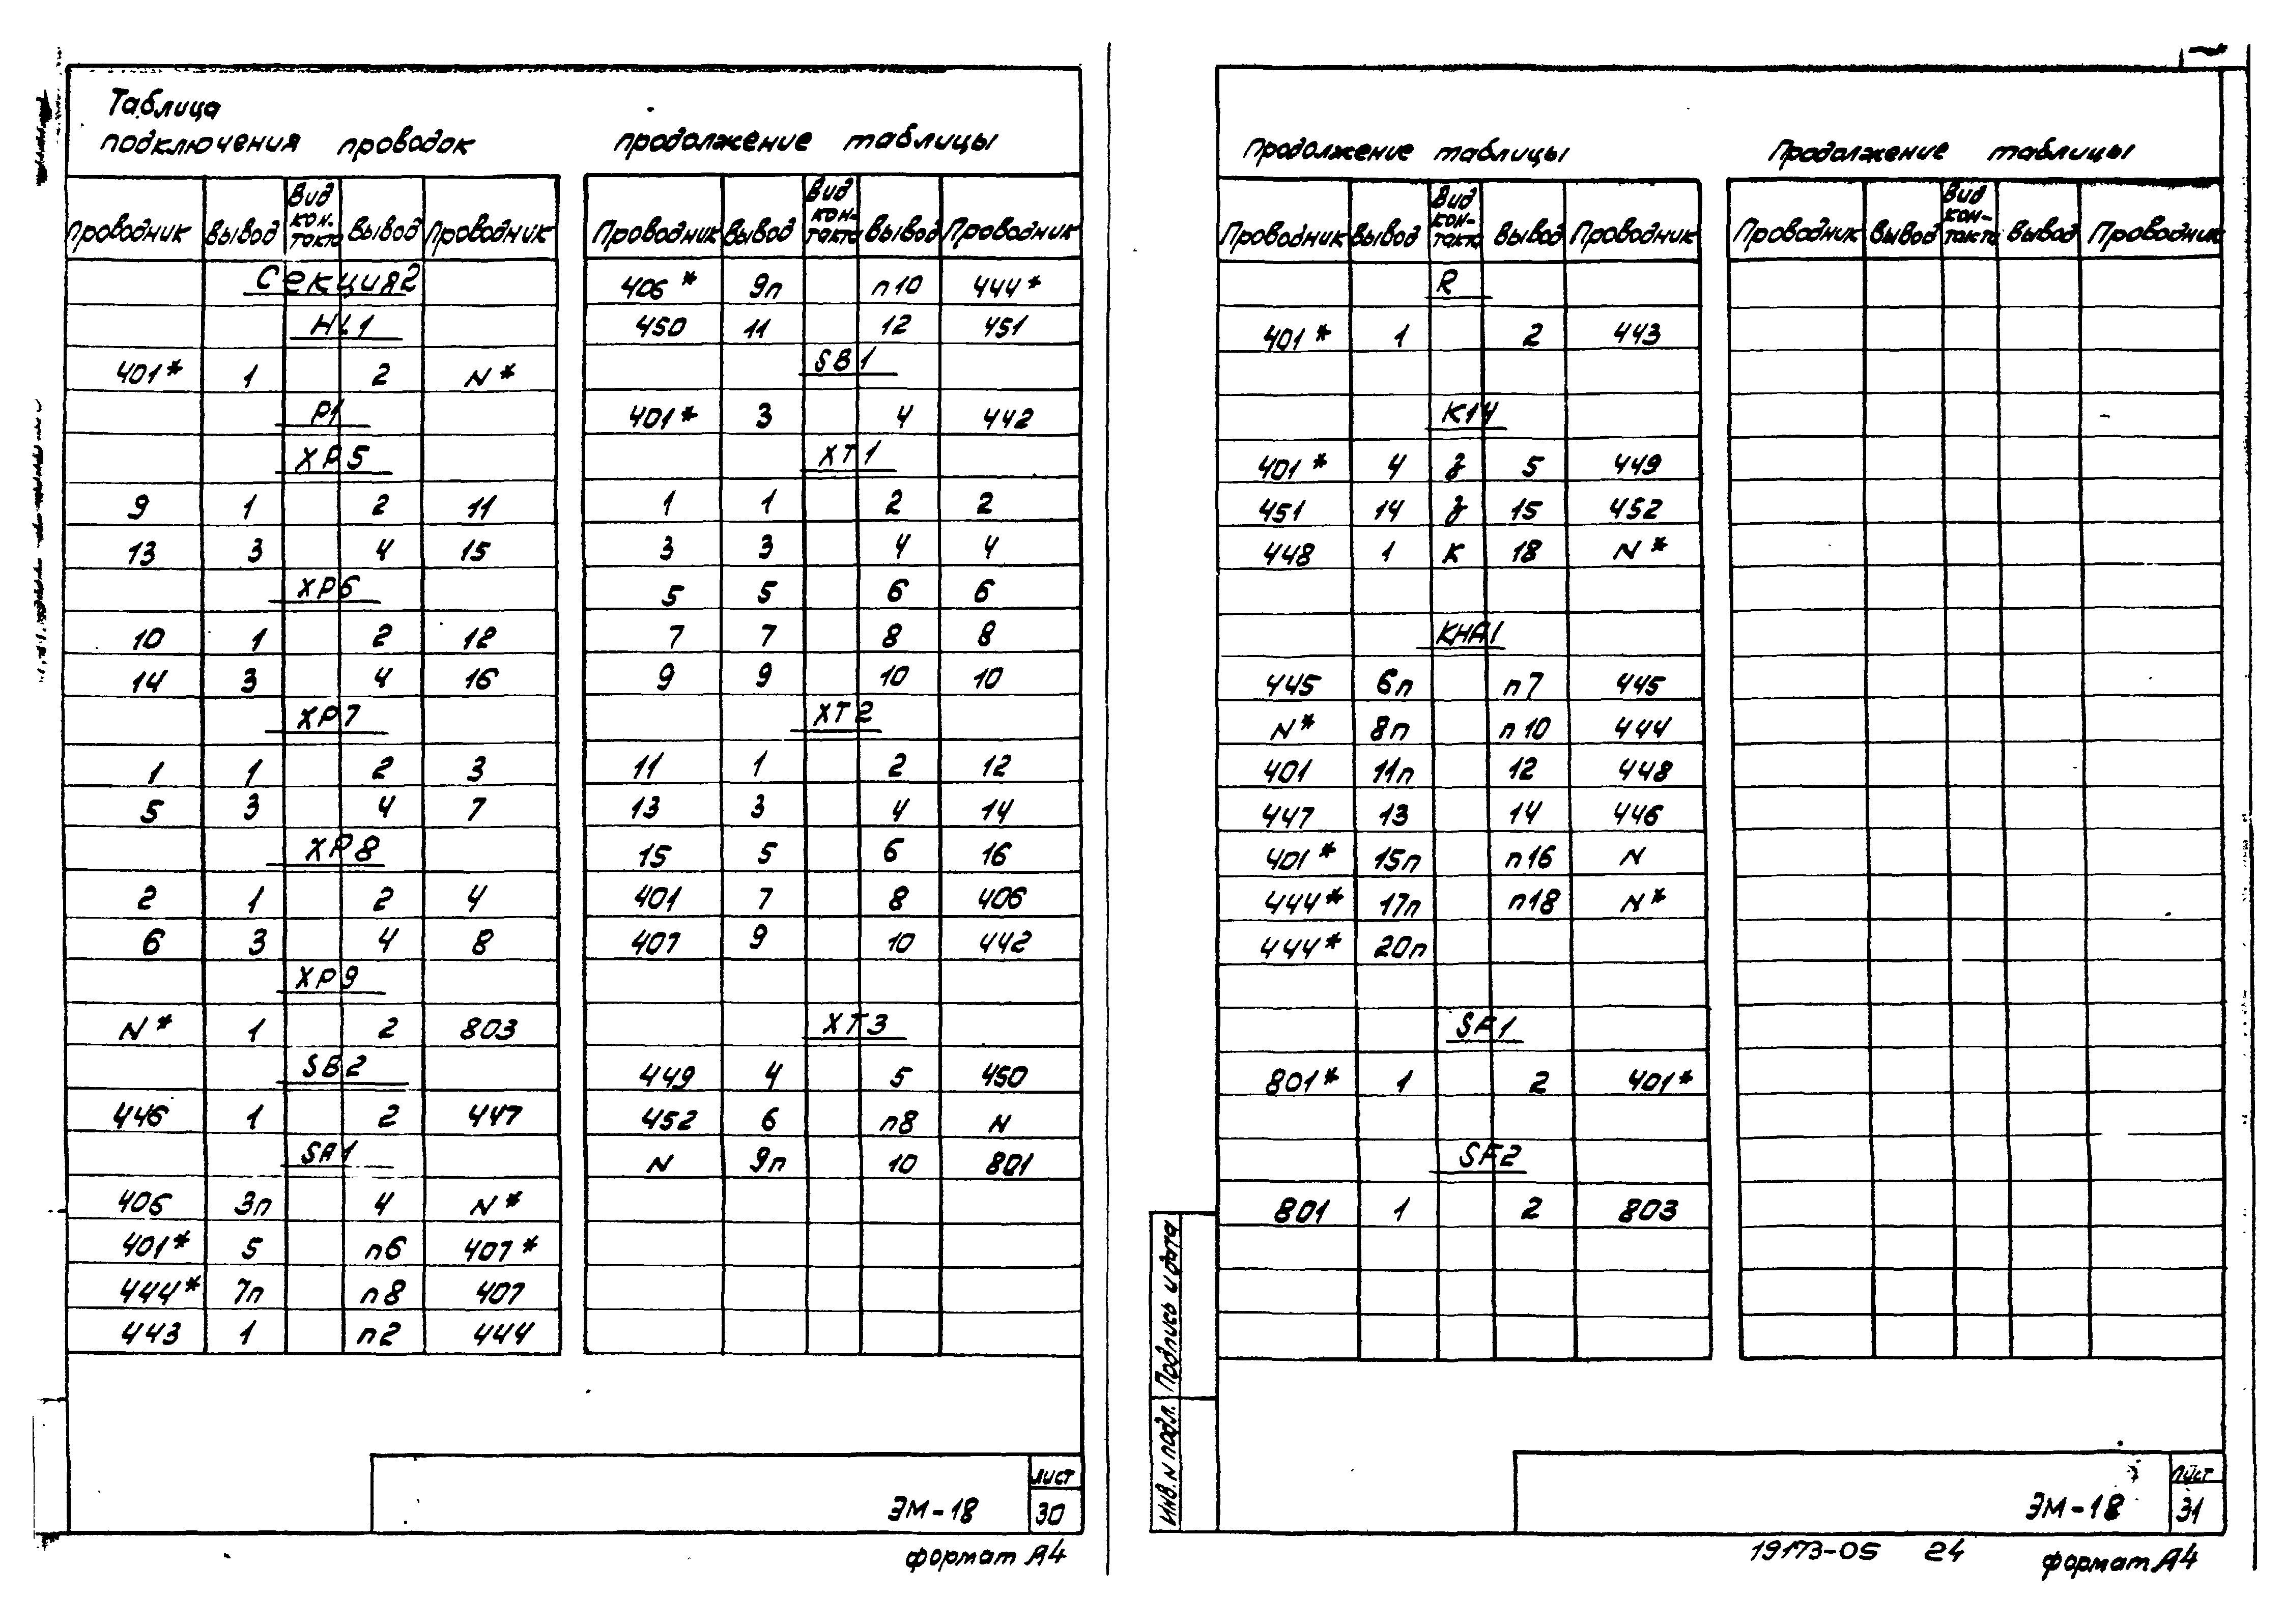 Таблица
подключения проводок
Проводник Вывод Вид кон-такта Вывод Проводник
Секция 2
HL1
401* 1 2 N*
P1
XP5
9 1 2 11
13 3 4 15
XP6
10 1 2 12
14 3 4 16
XP7
1 1 2 3
5 3 4 7
XP8
2 1 2 4
6 3 4 8
XP9
N* 1 2 803
SB2
446 1 2 447
SA1
406 3п 4 N*
401* 5 п6 407*
444* 7п п8 407
443 1 п2 444
продолжение таблицы
Проводник Вывод Вид кон-такта Вывод Проводник
406* 9п п10 444*
450 11 12 451
SB1
401* 3 4 442
XT1
1 1 2 2
3 3 4 4
5 5 6 6
7 7 8 8
9 9 10 10
XT2
11 1 2 12
13 3 4 14
15 5 6 16
401 7 8 406
407 9 10 442
XT3
449 4 5 450
452 6 п8 N
N 9п 10 801
ЭМ-18
Лист
30
формат А4
Продолжение таблицы
Проводник Вывод Вид кон-такта Вывод Проводник
R
401* 1 2 443
K14
401* 4 з 5 449
451 14 з 15 452
448 1 К 18 N*
KHA1
445 6п п7 445
N* 8п п10 444
401 11п 12 448
447 13 14 446
401* 15п п16 N
444* 17п п18 N*
444* 20п
SF1
801* 1 2 401*
SF2
801 1 2 803
Продолжение таблицы
Проводник Вывод Вид кон-такта Вывод Проводник
Инв. N подл. Подпись и дата
ЭМ-18
Лист
31
19173-05 24
формат А4